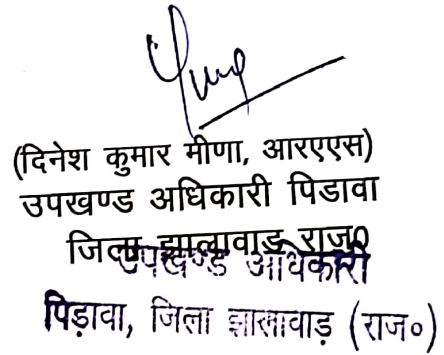 (दिनेश कुमार मीणा, आरएएस)
उपखण्ड अधिकारी पिडावा
जिला झालावाड राज0
उपखण्ड अधिकारी
पिड़ावा, जिला झालावाड़ (राज०)